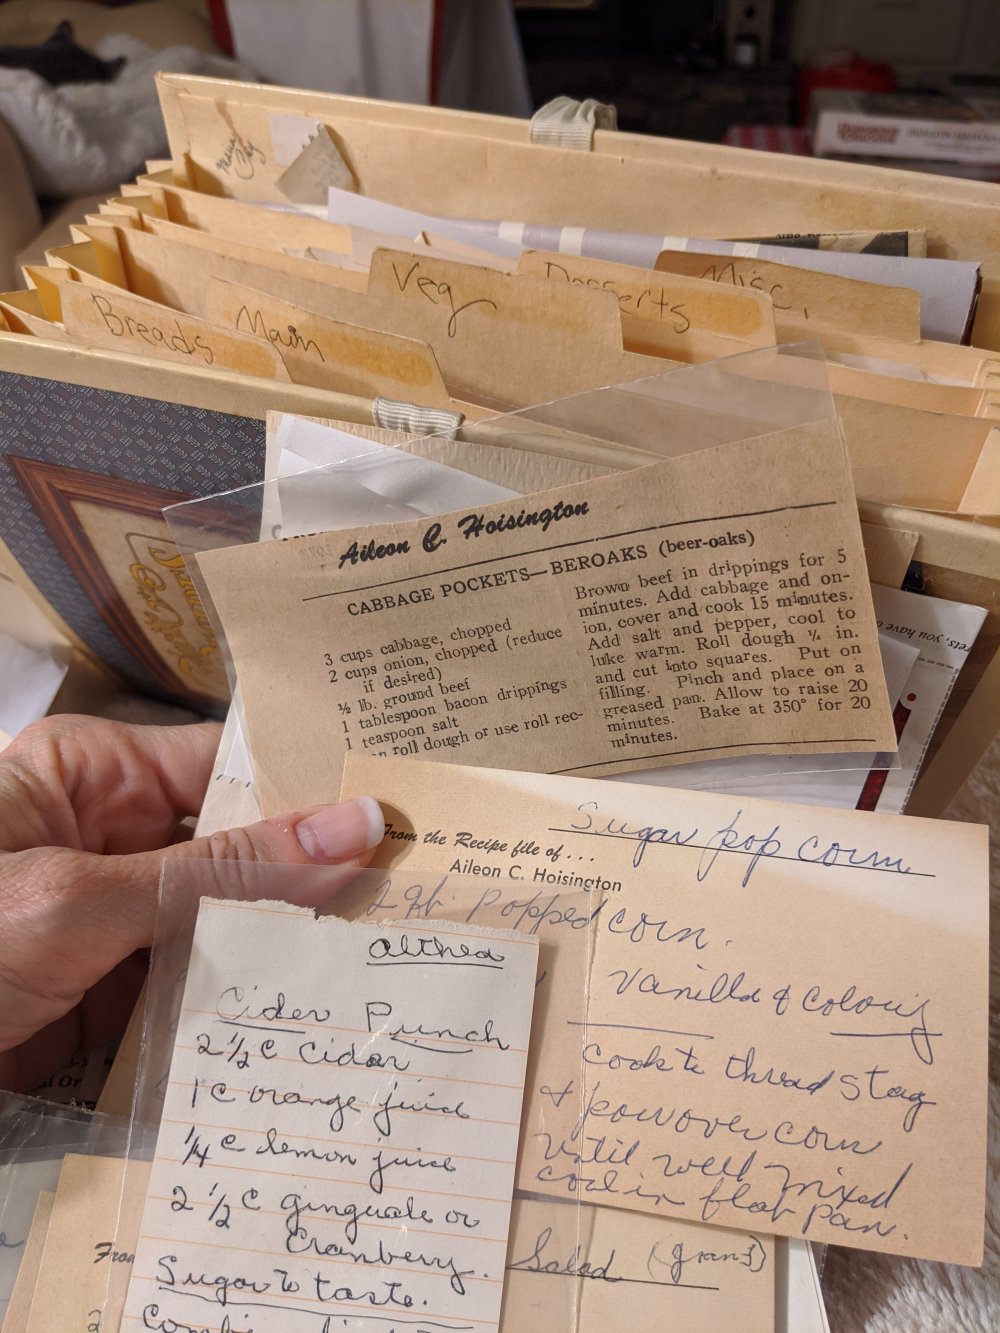 Breads
Main
Veg
Desserts
Misc.
Aileen C. Hoisington
CABBAGE POCKETS—BEROAKS (beer-oaks)
3 cups cabbage, chopped
2 cups onion, chopped (reduce
if desired)
½ lb. ground beef
1 tablespoon bacon drippings
1 teaspoon salt
roll dough or use roll rec-
Brown beef in drippings for 5
minutes. Add cabbage and on-
ion, cover and cook 15 minutes.
Add salt and pepper, cool to
luke warm. Roll dough ¼ in.
and cut into squares. Put on
filling. Pinch and place on a
greased pan. Allow to raise 20
minutes. Bake at 350° for 20
minutes.
Sugar pop corn
From the Recipe file of . . .
Aileon C. Hoisington
2 qt. Popped corn.
Vanilla & coloring
cook to thread stag
& pour over corn
until well mixed
cool in flat pan.
Althea
Cider Punch
2 ½ c cidar
1 c orange juice
¼ c lemon juice
2 ½ c ginguale or
cranberry.
Sugar to taste.
Salad